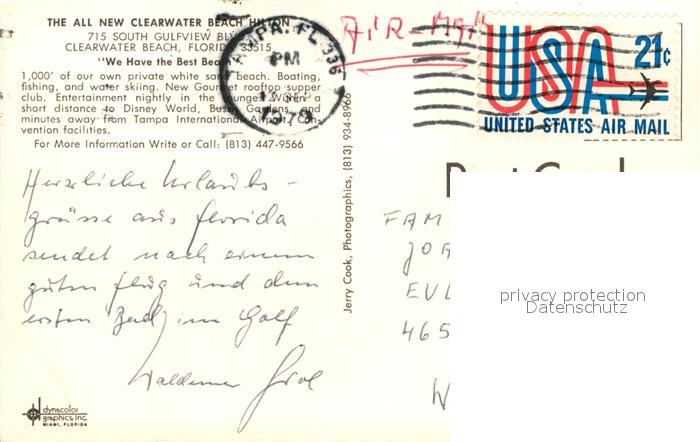 THE ALL NEW CLEARWATER BEACH HILTON
715 SOUTH GULFVIEW BLV
CLEARWATER BEACH, FLORIDA 33515
"We Have the Best Beac
1,000' of our own private white sand beach. Boating,
fishing, and water skiing. New Gourmet rooftop supper
club. Entertainment nightly in the lounge. Within a
short distance to Disney World, Busch Gardens, and
minutes away from Tampa International Airport. Con-
vention facilities.
For More Information Write or Call: (813) 447-9566
TAMPA, FL 336
PM
1979
AIR-MAIL
USA 21c
UNITED STATES AIR MAIL
Post Card
Jerry Cook, Photographics, (813) 934-8966
Herzliche Urlaubs-
grüsse aus Florida
sendet nach einem
guten Flug und dem
ersten Bad im Golf
Waldemar
FAM
JOA
EUL
465
W
privacy protection
Datenschutz
dynacolor
graphics, inc.
MIAMI, FLORIDA